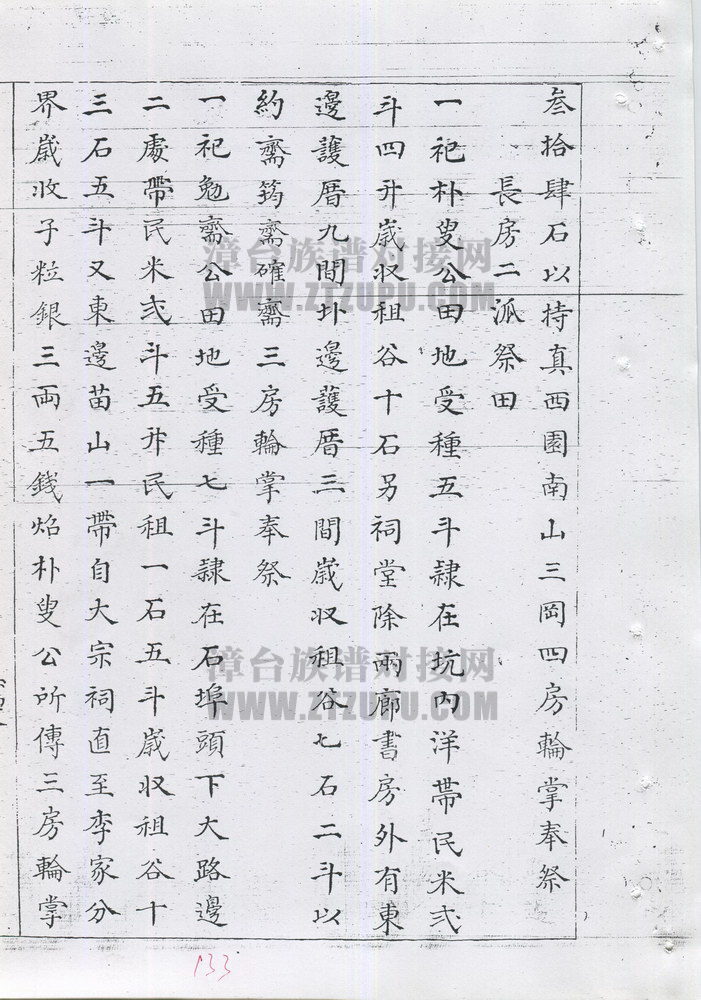 叁拾肆石以持真西園南山三岡四房輪掌奉祭
長房二派祭田
一祀朴叟公田地受種五斗隷在坑內洋帶民米弍
斗四升歲收租谷十石另祠堂除兩廊書房外有東
邊護厝九間圤邊護厝三間歲收租谷七石二斗以
約齋筠齋確齋三房輪掌奉祭
一祀勉齋公田地受種七斗隷在石埠頭下大路邊
二處帶民米弍斗五升民租一石五斗歲收租谷十
三石五斗又東邊苗山一帶自大宗祠直至李家分
界歲收子粒銀三両五錢焰朴叟公所傳三房輪掌
漳台族谱对接网
WWW.ZTZUPU.COM
漳台族谱对接网
WWW.ZTZUPU.COM
133